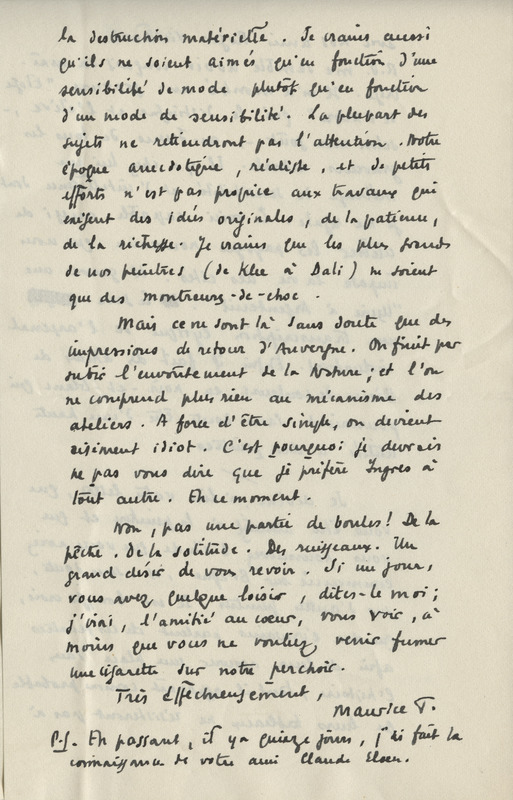 la destruction matérielle. Je crains aussi
qu'ils ne soient aimés qu'en fonction d'une
sensibilité de mode plutôt qu'en fonction
d'un mode de sensibilité. La plupart des
sujets ne retiendront pas l'attention. Notre
époque anecdotique, réaliste, et de petits
efforts n'est pas propice aux travaux qui
exigent des idées originales, de la patience,
de la richesse. Je crains que les plus grands
de nos peintres (de Klee à Dali) ne soient
que des montreurs-de-choc.
Mais ce ne sont là sans doute que des
impressions de retour d'Auvergne. On finit par
subir l'envoûtement de la Nature; et l'on
ne comprend plus rien au mécanisme des
ateliers. A force d'être simple, on devient
aisément idiot. C'est pourquoi je devrais
ne pas vous dire que je préfère Ingres à
tout autre. En ce moment.
Non, pas une partie de boules! De la
pêche. de la solitude. Des ruisseaux. Un
grand désir de vous revoir. Si un jour,
vous avez quelque loisir, dites-le moi;
j'irai, l'amitié au cœur, vous voir, à
moins que vous ne vouliez venir fumer
une cigarette sur notre perchoir.
Très affectueusement,
Maurice T.
P.S. En passant, il y a quinze jours, j'ai fait la
connaissance de votre ami Claude Elsen.